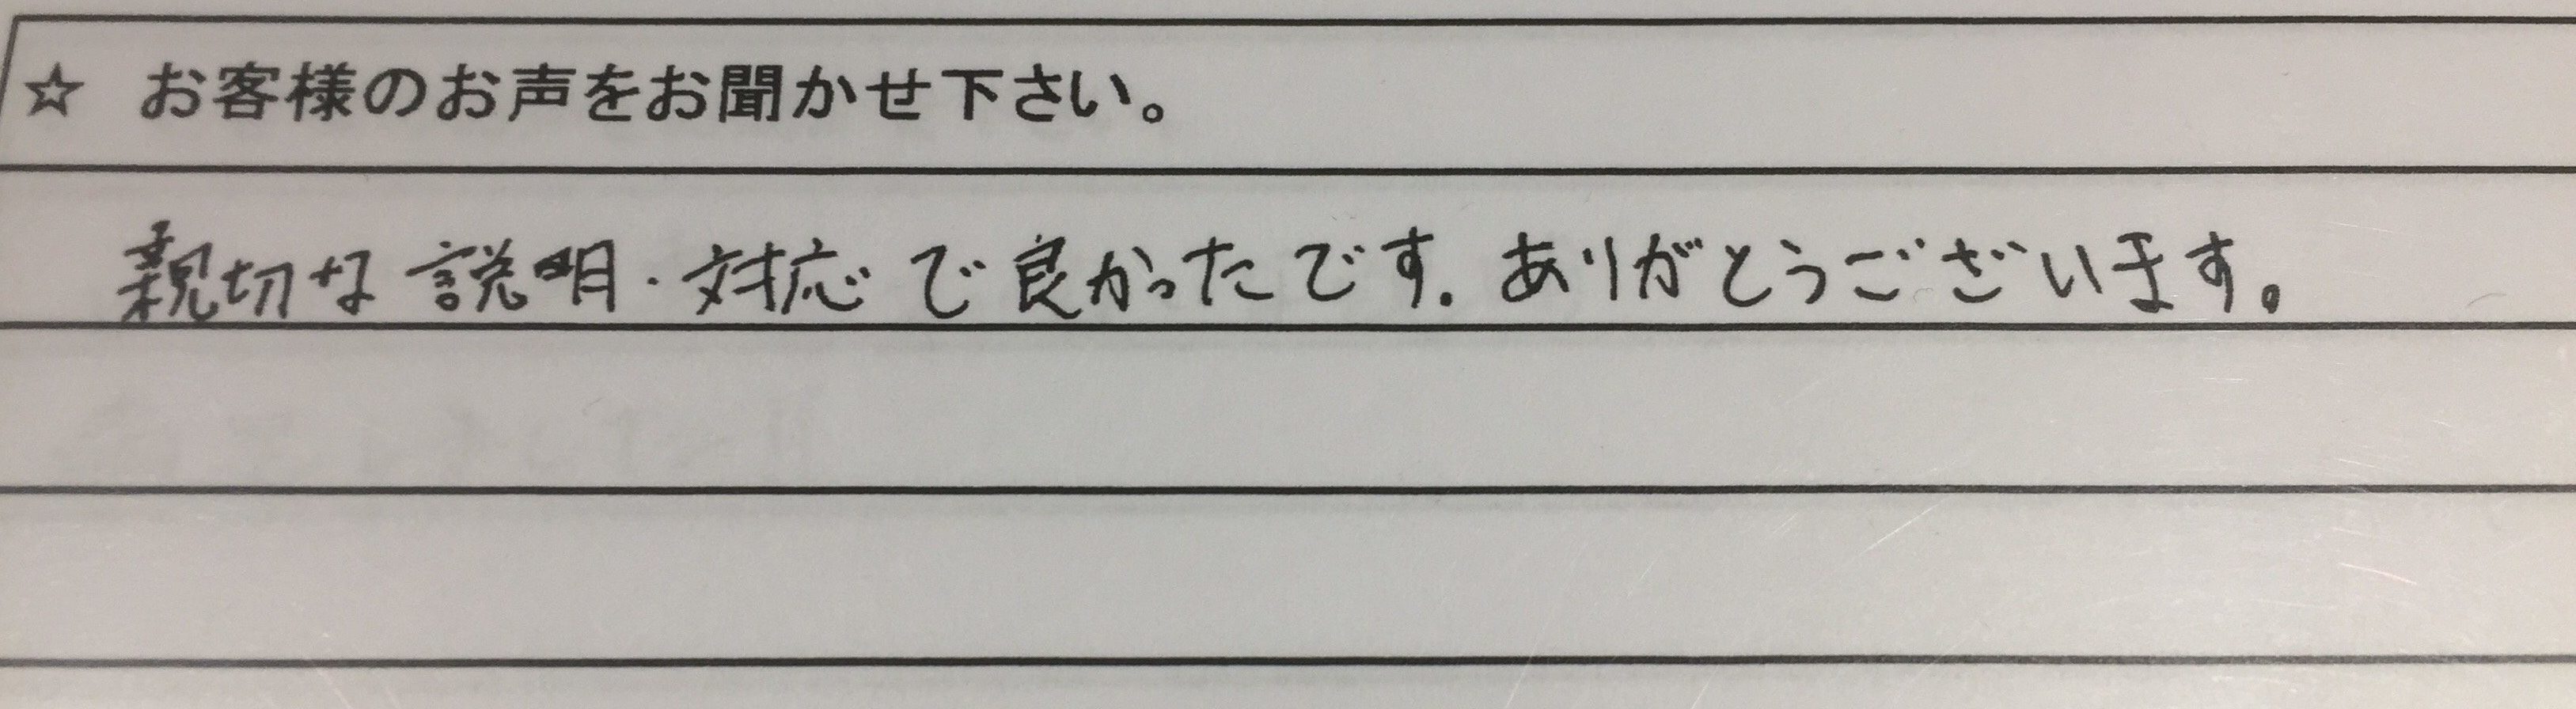 ☆ お客様のお声をお聞かせ下さい。
親切な説明・対応で良かったです。ありがとうございます。